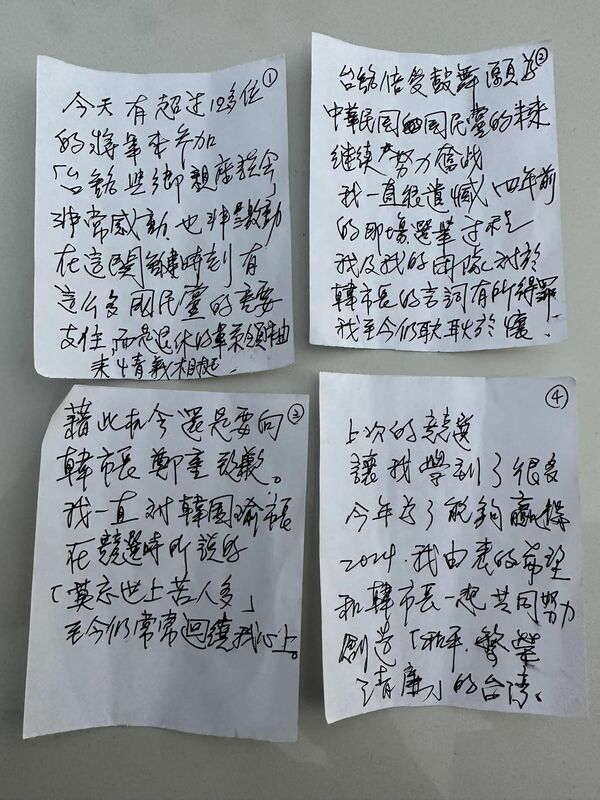 ①
今天有超过120多位
的將軍來參加
「台銘與鄉親座談会
非常感動、也非常激動
在這関鍵時刻有
這么多國民黨的重要
支住,而是退休的軍系領袖
来情義相挺.
②
台銘倍受鼓舞願为
中華民国 国民黨的未来
继续努力奮战
我一直很遺憾,四年前
的那場選举过程
我及我的团隊对於
韓市長的言詞有所得罪
我至今仍耿耿於懷.
③
藉此机会還是要向
韓市長鄭重致歉。
我一直对韓國瑜市長
在競選時所說的
「莫忘世上苦人多」
至今仍常常迴繞我心上。
④
上次的競選
讓我學到了很多
今年为了能夠贏得
2024.我由衷的希望
和韓市長一起共同努力
創造「和平.繁榮
清廉」的台湾.